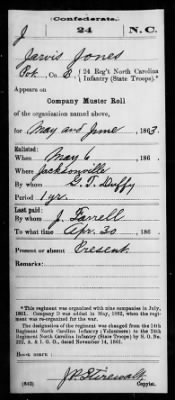 Confederate.
J 24 N.C.
Jarvis Jones
Pvt, Co. E, 24 Reg't North Carolina
Infantry (State Troops).*
Appears on
Company Muster Roll
of the organization named above,
for May and June, 1863.
Enlisted:
When May 6, 186 .
Where Jacksonville
By whom G. T. Duffy
Period 1 yr.
Last paid:
By whom J. Farrell
To what time Apr. 30, 186 .
Present or absent Present
Remarks:
*This regiment was organized with nine companies in July,
1861. Company D was added in May, 1862, when the regi-
ment was re-organized for the war.
The designation of the regiment was changed from the 14th
Regiment North Carolina Infantry (Volunteers) to the 24th
Regiment North Carolina Infantry (State Troops) by S. O. No.
222, A. & I. G. O., dated November 14, 1861.
Book mark:
(642)
Copyist.